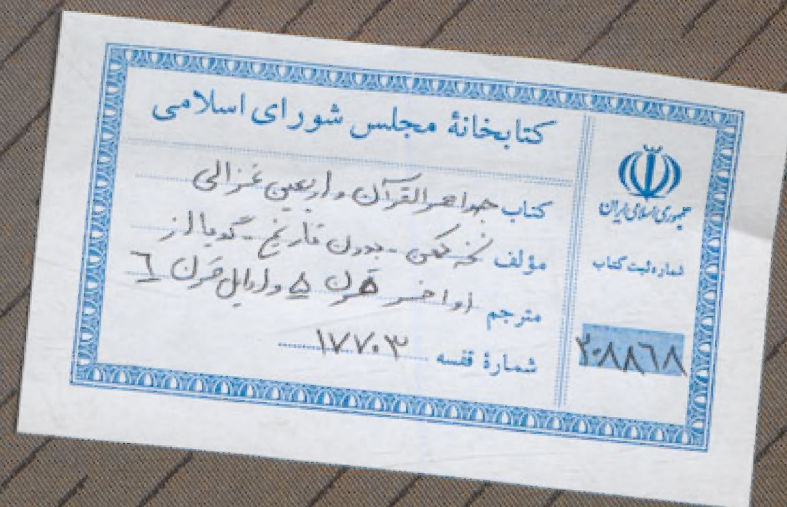 کتابخانهٔ مجلس شورای اسلامی
کتاب جواهر القرآن و اربعین غزالی
مؤلف نسخه کهن - بدون تاریخ - گویا از
مترجم اواخر قرن ۵ و اوایل قرن ٦
شمارهٔ قفسه ۱۷۷۰۳
جمهوری اسلامی ایران
شماره ثبت کتاب
۲۰۸۸٦۸